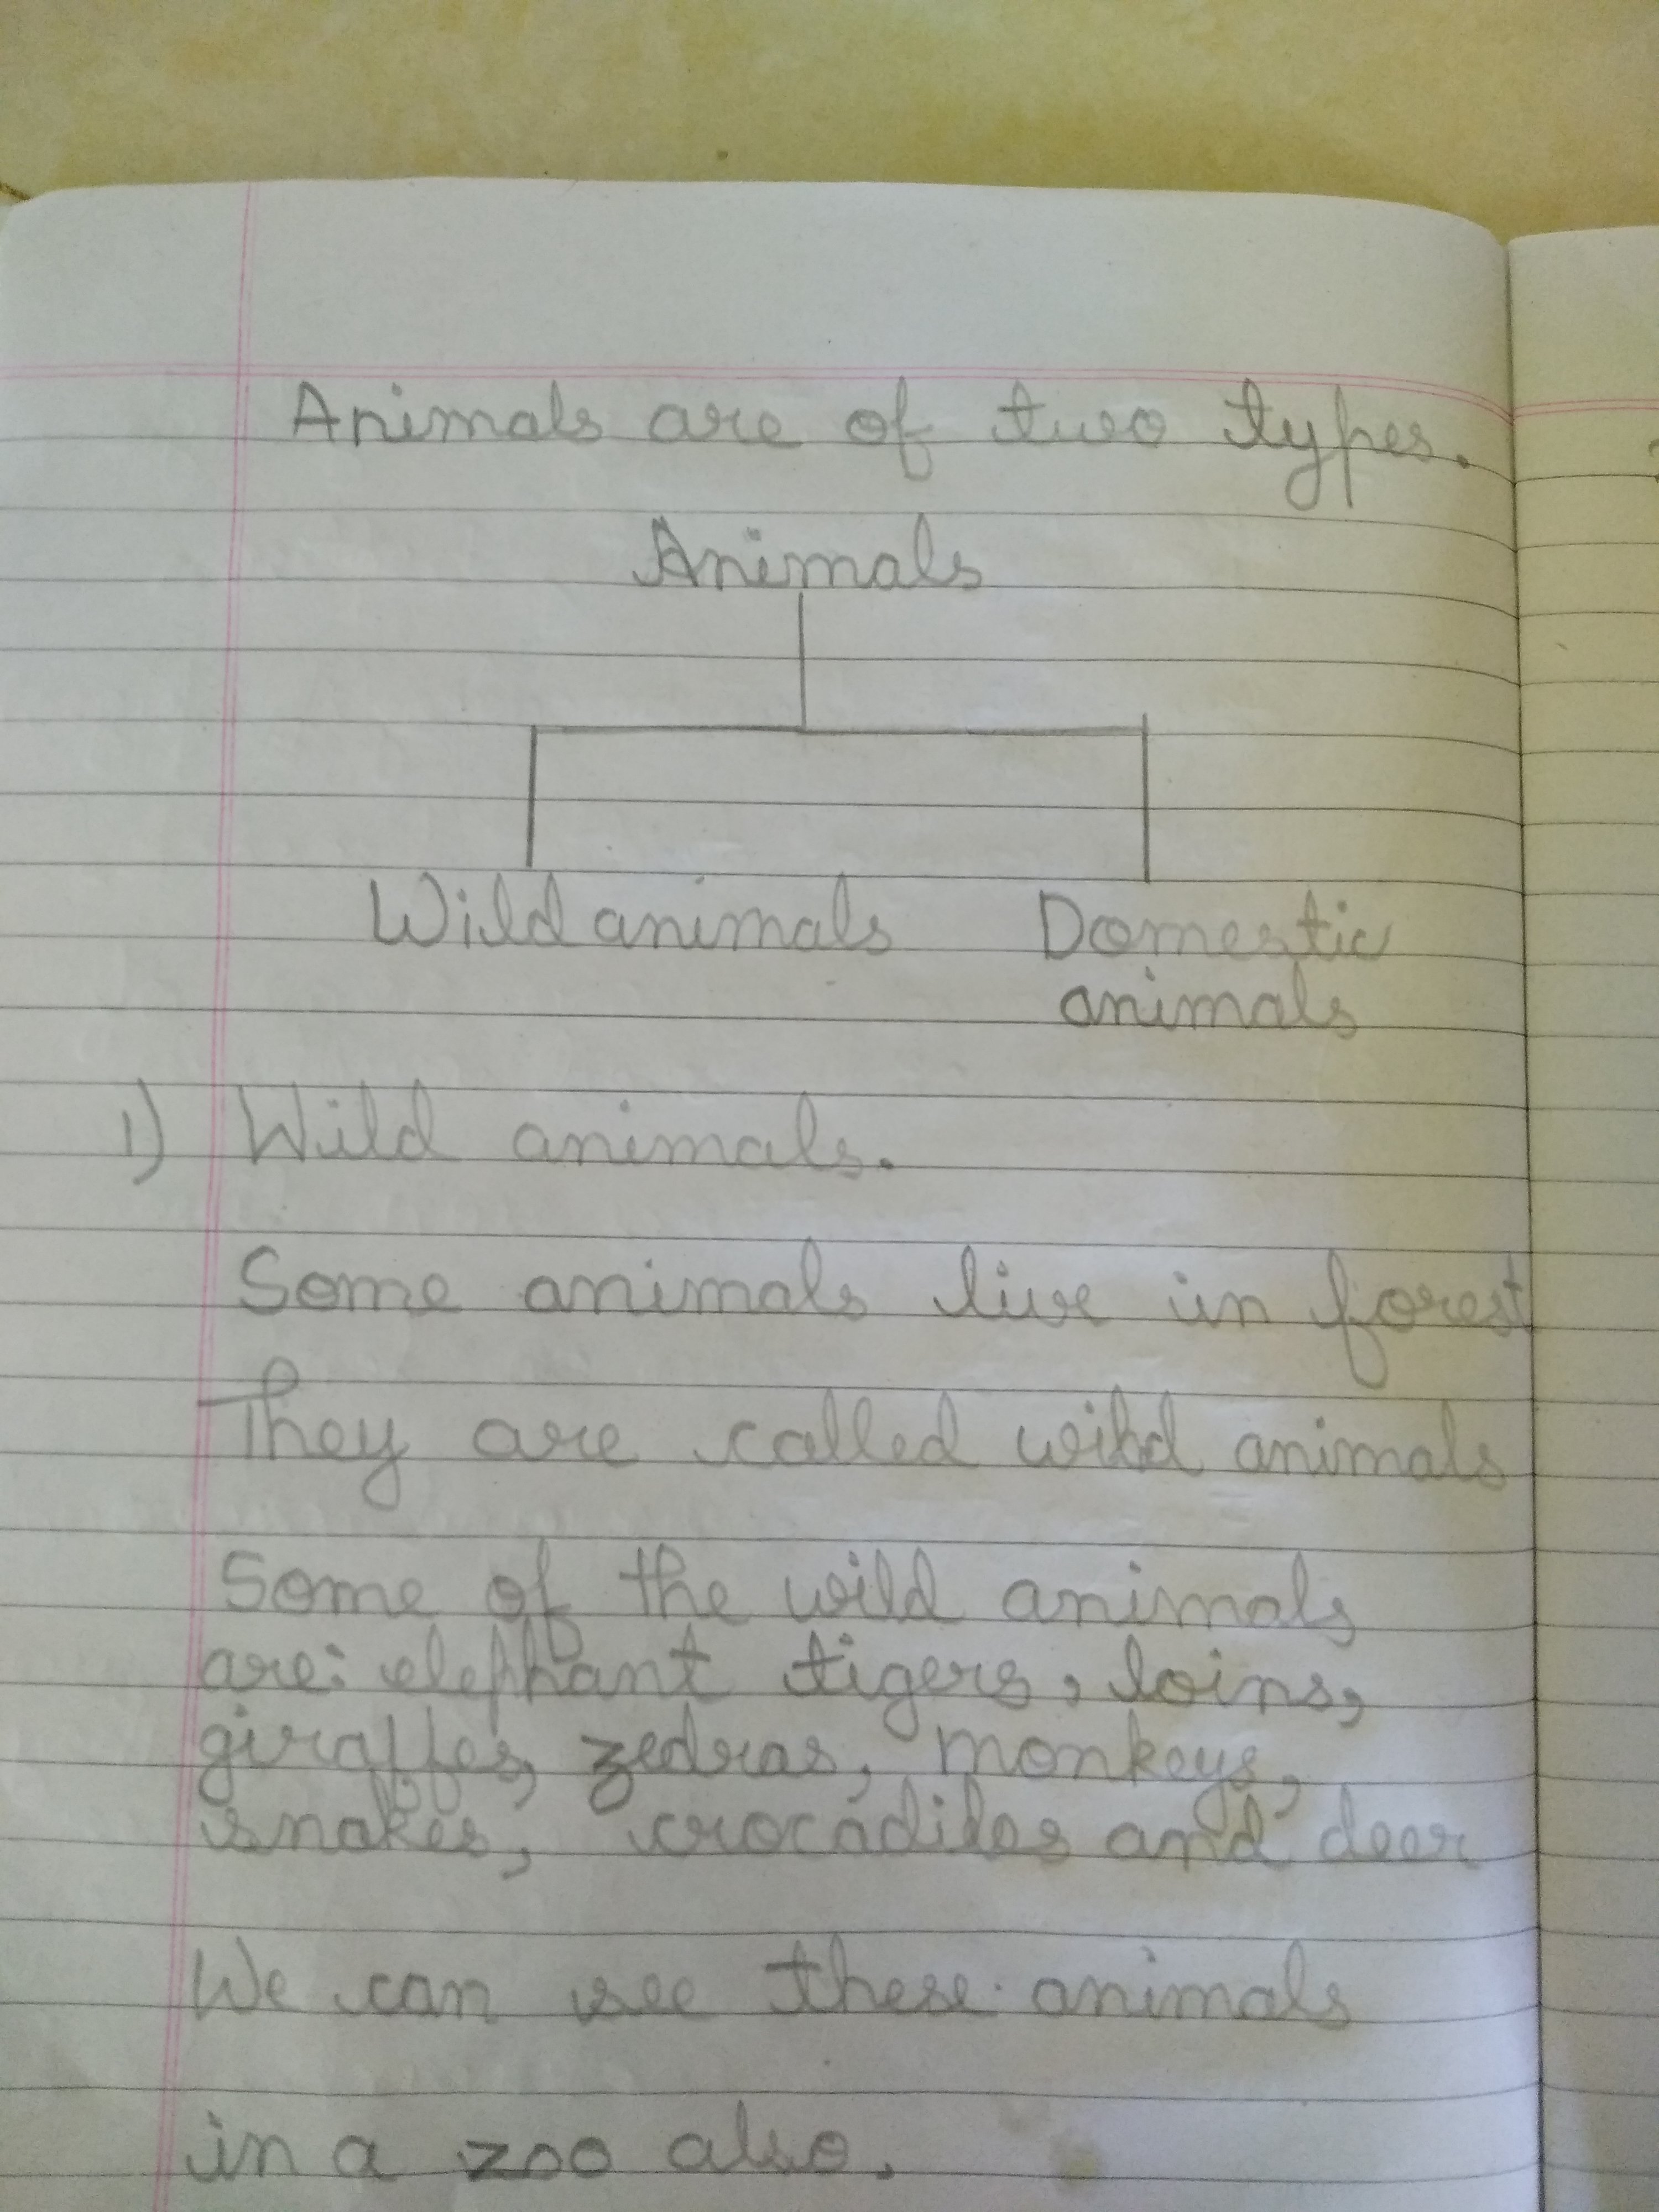 Animals are of two types.
Animals
Wild animals Domestic
animals
1) Wild animals.
Some animals live in forest
They are called wild animals
Some of the wild animals
are: elephant tigers, loins,
giraffes, zedras, monkeys,
snakes, crocadiles and deer
We can see these animals
in a zoo also.